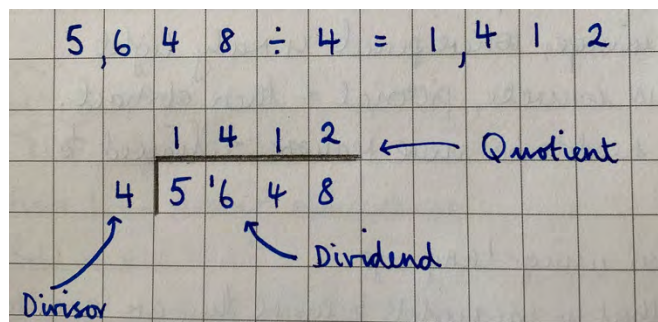 5,648 ÷ 4 = 1,412
1 4 1 2 Quotient
4 5 ¹6 4 8
Dividend
Divisor